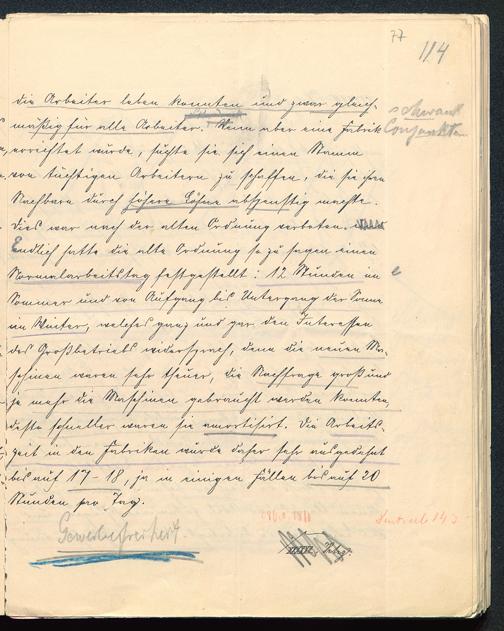 77
114
die Arbeiter leben konnten und zwar gleich-
mäßig für alle Arbeiter. Wenn aber eine Fabrik
errichtet wurde, suchte sie sich einen Stamm
von tüchtigen Arbeitern zu schaffen, die sie ihren
Nachbarn durch höhere Löhne abspenstig machte.
Dies war nach der alten Ordnung verboten.
Endlich hatte die alte Ordnung so zu sagen einen
Normalarbeitstag festgestellt: 12 Stunden im
Sommer und von Aufgang bis Untergang der Sonne
im Winter, welches ganz und gar den Interessen
des Großbetriebs widersprach, denn die neuen Ma-
schinen waren sehr theuer, die Nachfrage groß und
je mehr die Maschinen gebraucht werden konnten,
desto schneller waren sie amortisirt. Die Arbeits-
zeit in den Fabriken wurde daher sehr ausgedehnt
bis auf 17-18, ja in einigen Fällen bis auf 20
Stunden pro Tag.
Gewerbefreiheit.